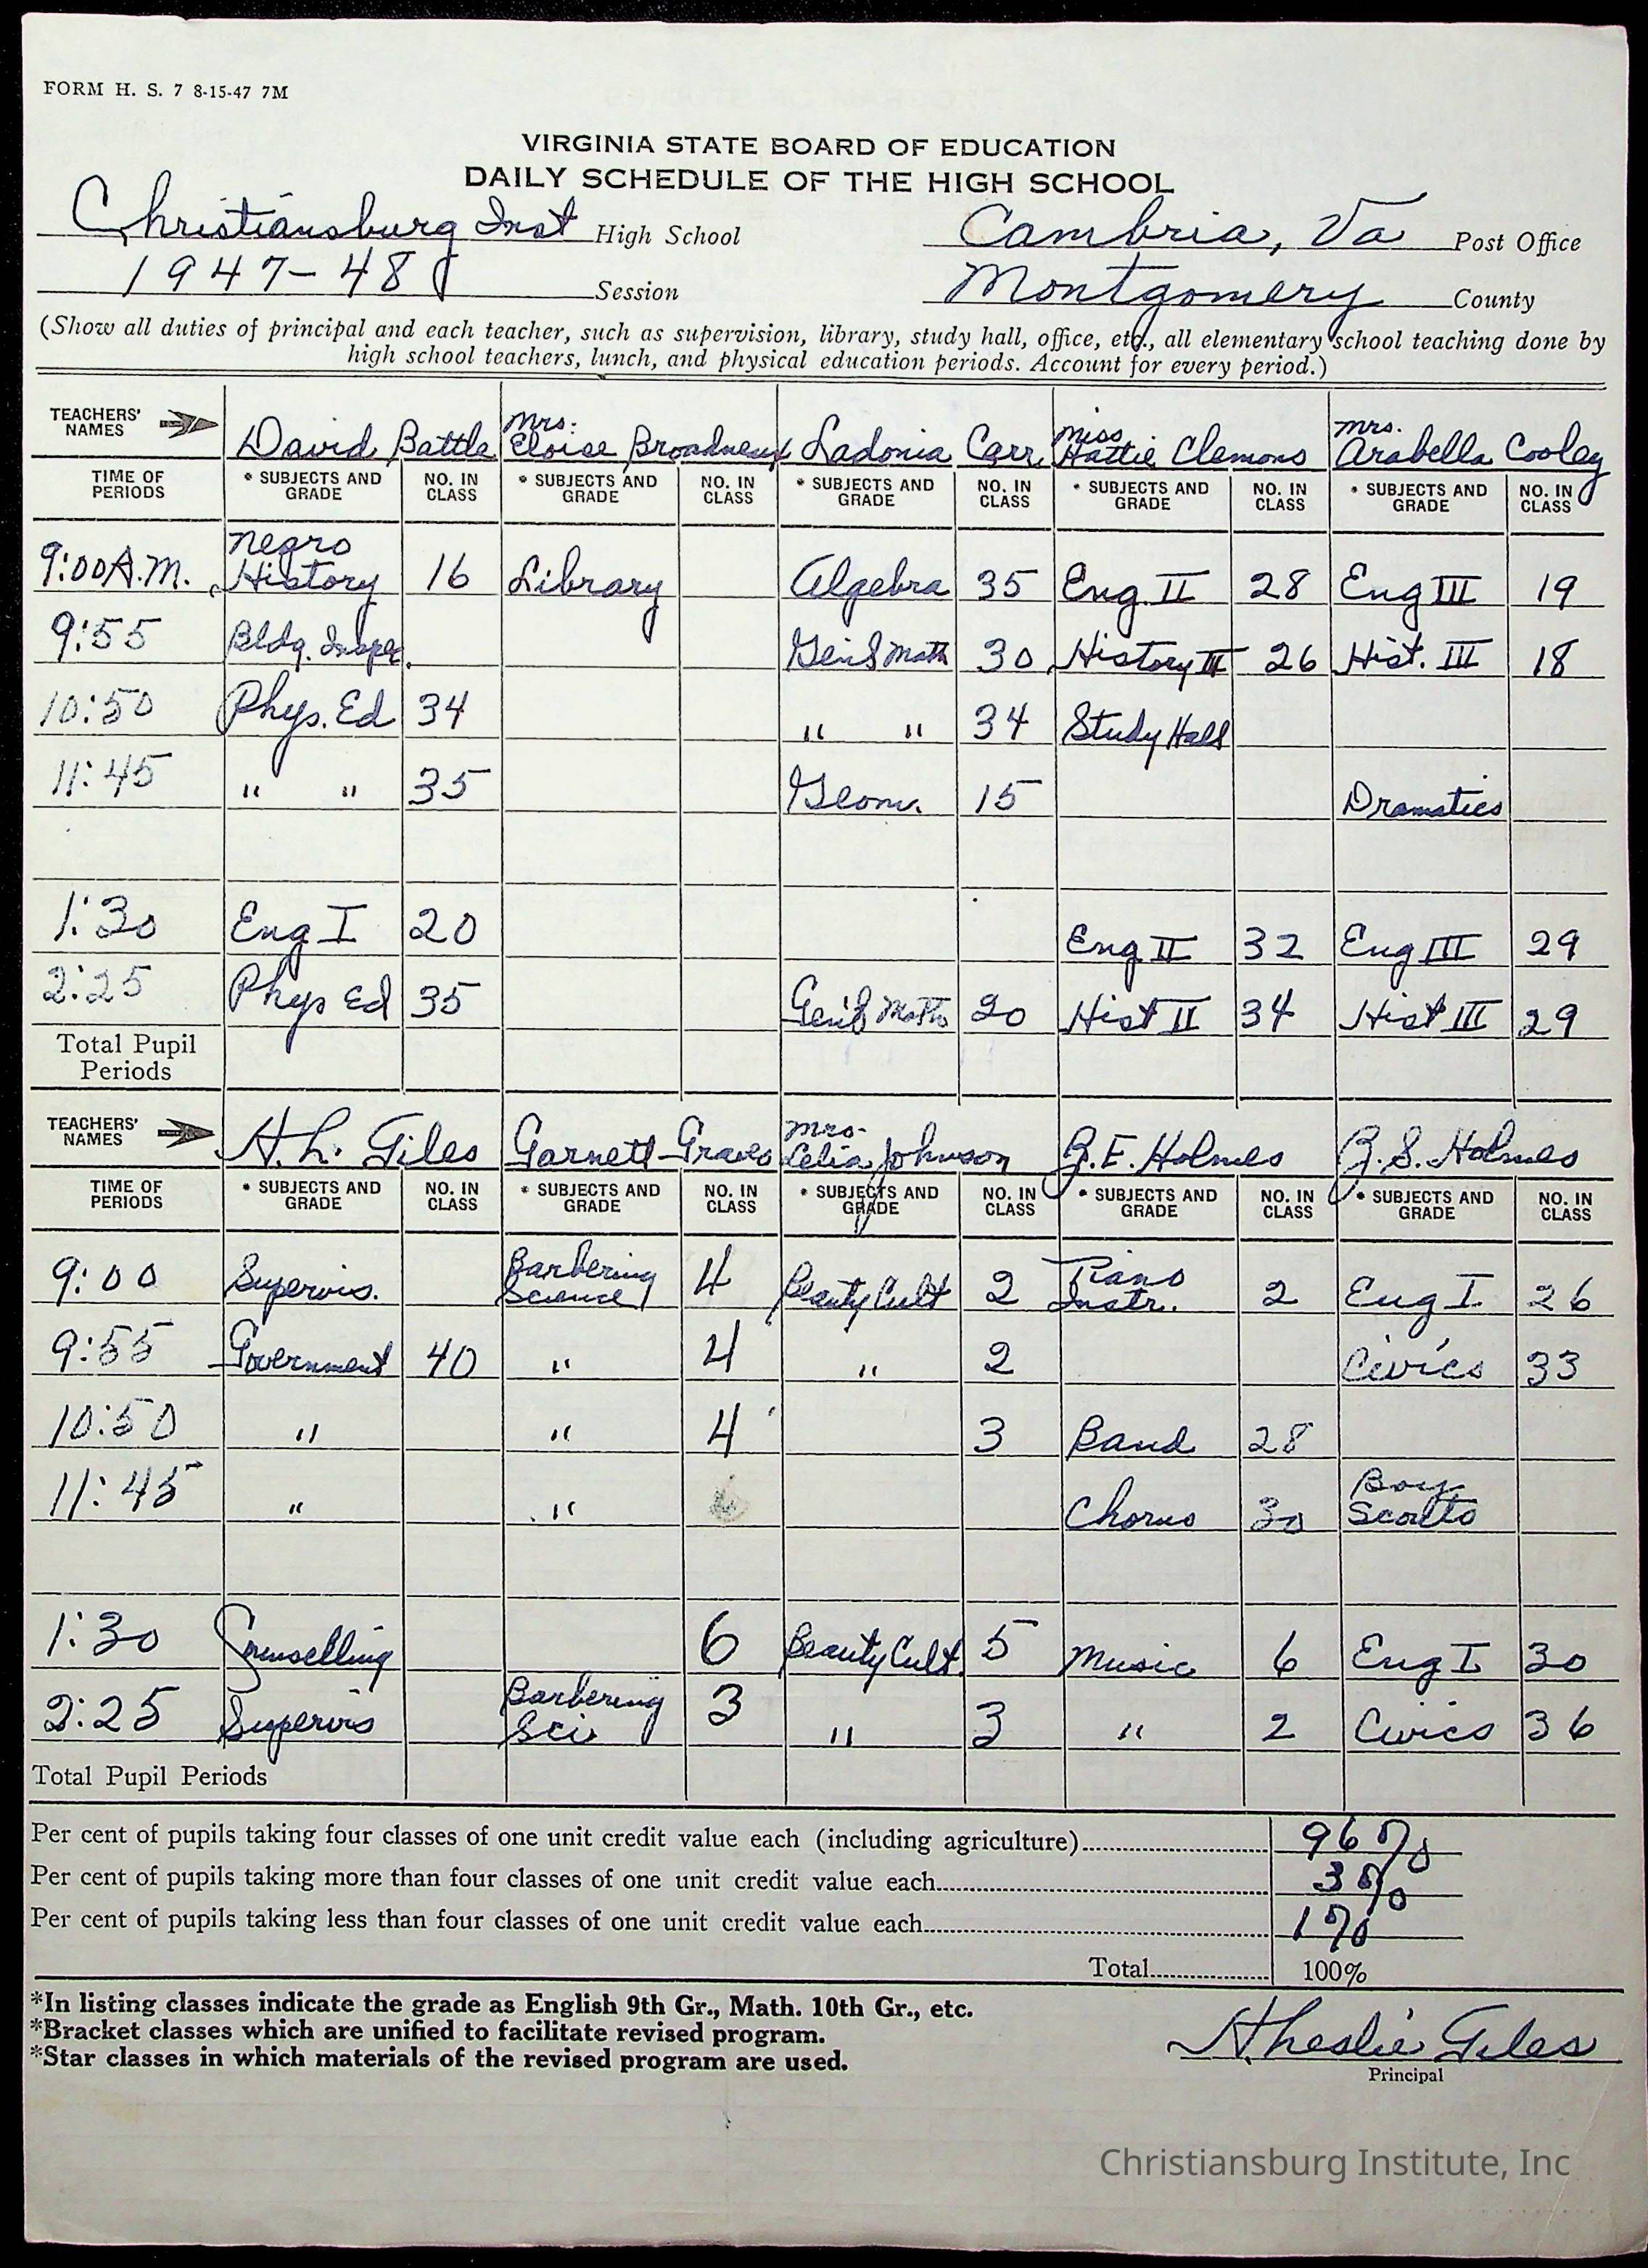 FORM H. S. 7 8-15-47 7M
VIRGINIA STATE BOARD OF EDUCATION
DAILY SCHEDULE OF THE HIGH SCHOOL
Christiansburg Inst High School Cambria, Va Post Office
1947-48 Session Montgomery County
(Show all duties of principal and each teacher, such as supervision, library, study hall, office, etc., all elementary school teaching done by
high school teachers, lunch, and physical education periods. Account for every period.)
TEACHERS' NAMES David Battle Mrs. Eloise Broadneux Ladonia Carr Miss Hattie Clemons Mrs. Arabella Cooley
TIME OF PERIODS * SUBJECTS AND GRADE NO. IN CLASS * SUBJECTS AND GRADE NO. IN CLASS * SUBJECTS AND GRADE NO. IN CLASS * SUBJECTS AND GRADE NO. IN CLASS * SUBJECTS AND GRADE NO. IN CLASS
9:00 A.M. Negro History 16 Library Algebra 35 Eng. II 28 Eng III 19
9:55 Bldg. Inspec. Gen'l Math 30 History II 26 Hist. III 18
10:50 Phys. Ed 34 " " 34 Study Hall
11:45 " " 35 Geom. 15 Dramatics
1:30 Eng I 20 Eng II 32 Eng III 29
2:25 Phys Ed 35 Gen'l Math 20 Hist II 34 Hist III 29
Total Pupil Periods
TEACHERS' NAMES H. L. Giles Garnett Graves Mrs. Lelia Johnson J. E. Holmes J. S. Holmes
TIME OF PERIODS * SUBJECTS AND GRADE NO. IN CLASS * SUBJECTS AND GRADE NO. IN CLASS * SUBJECTS AND GRADE NO. IN CLASS * SUBJECTS AND GRADE NO. IN CLASS * SUBJECTS AND GRADE NO. IN CLASS
9:00 Supervis. Barbering Science 4 Beauty Cult 2 Piano Instr. 2 Eng I 26
9:55 Government 40 " 4 " 2 Civics 33
10:50 " " 4 3 Band 28
11:45 " " Chorus 30 Boy Scouts
1:30 Counselling 6 Beauty Cult. 5 Music 6 Eng I 30
2:25 Supervis Barbering Sci 3 " 3 " 2 Civics 36
Total Pupil Periods
Per cent of pupils taking four classes of one unit credit value each (including agriculture) 96%
Per cent of pupils taking more than four classes of one unit credit value each 3%
Per cent of pupils taking less than four classes of one unit credit value each 1%
Total 100%
*In listing classes indicate the grade as English 9th Gr., Math. 10th Gr., etc.
*Bracket classes which are unified to facilitate revised program.
*Star classes in which materials of the revised program are used.
H. Leslie Giles
Principal
Christiansburg Institute, Inc